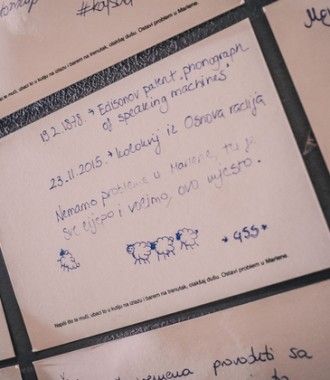 #kajsu
Napiši što te muči, ubaci to u kutiju na izlazu i barem na trenutak, olakšaj dušu. Ostavi problem u Marlene.
19.2.1878. → Edisonov patent „phonograph
of speaking machines"
23.11.2015. → kolokvij iz Osnova radija
Nemamo probleme u Marlene, tu je
sve lijepo i volimo ovo mjesto.
* GSS *
Napiši što te muči, ubaci to u kutiju na izlazu i barem na trenutak, olakšaj dušu. Ostavi problem u Marlene.
provoditi sa